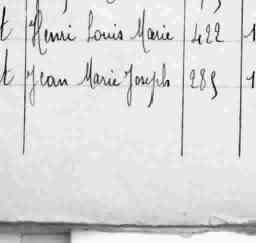 t Henri Louis Marie 422 1
t Jean Marie Joseph 285 1